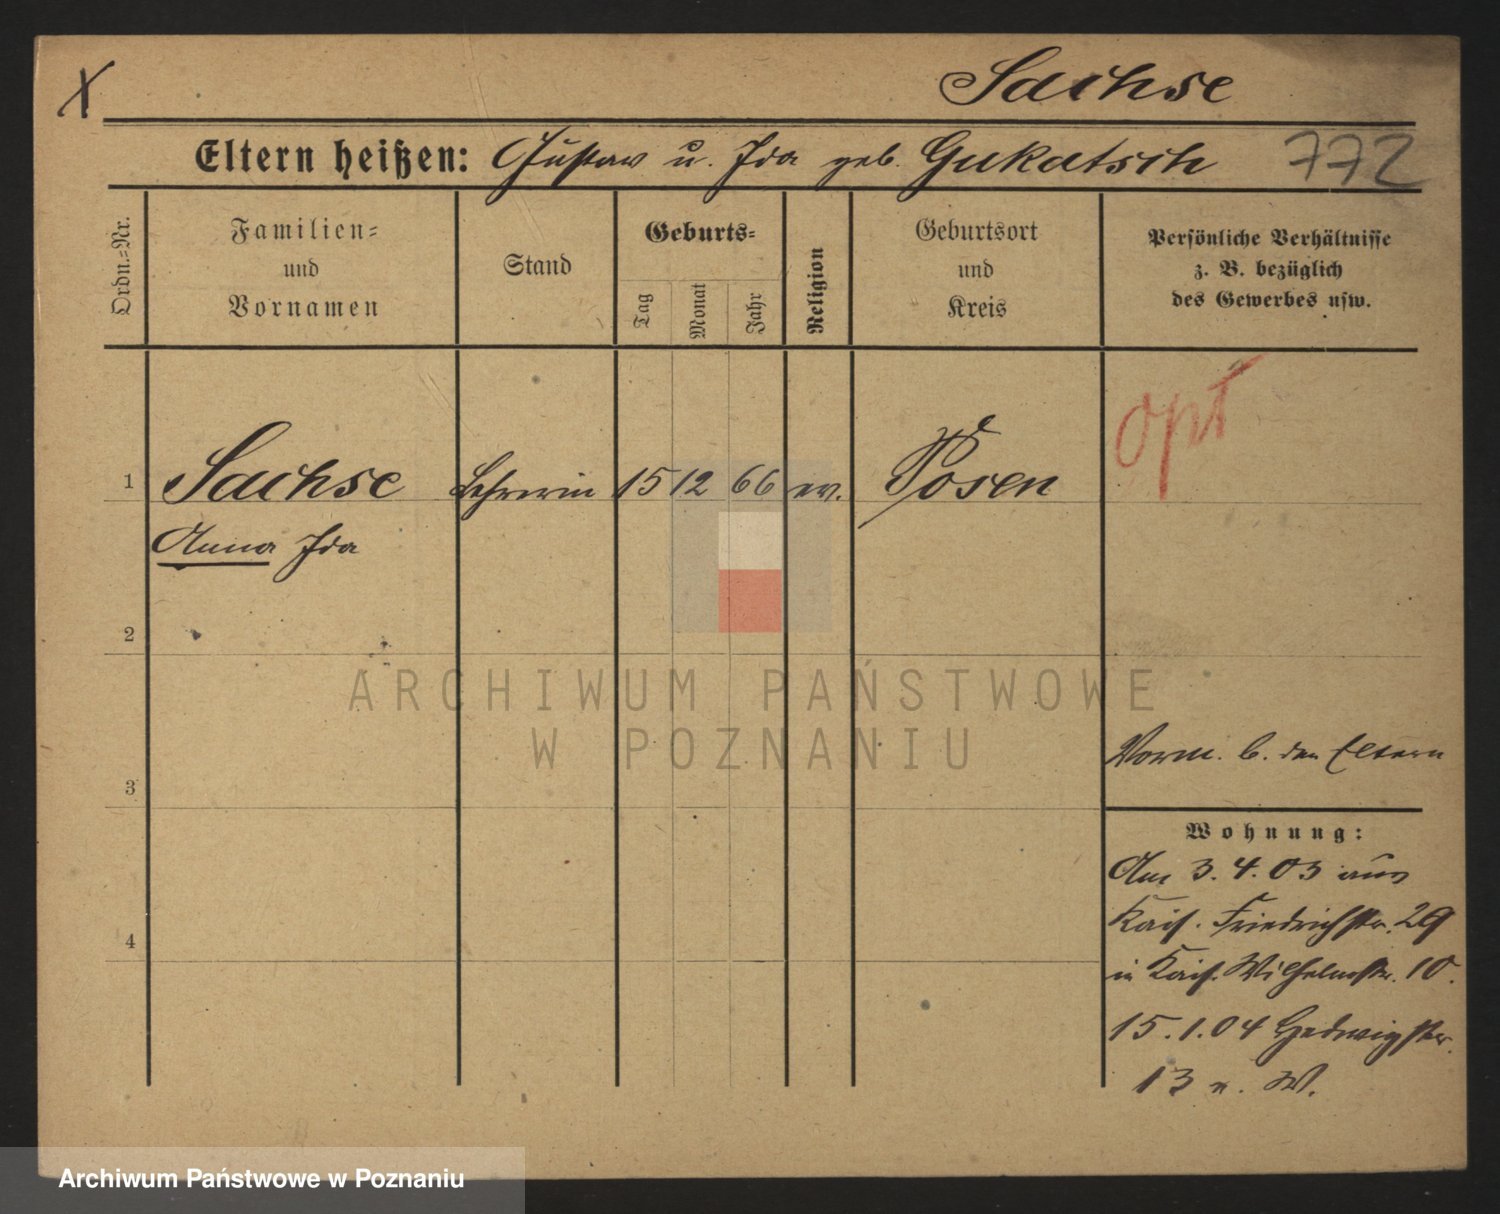 X
Sachse
Eltern heißen: Gustav u. Ida geb. Gukatsch 772
Ordn.-Nr.
Familien-
und
Vornamen
Stand
Geburts-
Tag
Monat
Jahr
Religion
Geburtsort
und
Kreis
Persönliche Verhältnisse
z. B. bezüglich
des Gewerbes usw.
opt
1 Sachse Lehrerin 15 12 66 ev. Posen
Anna Ida
2
ARCHIWUM PAŃSTWOWE
W POZNANIU
Vorm. b. den Eltern
3
Wohnung:
Am 3.4.03 aus
Kais. Friedrichstr. 29
in Kais. Wilhelmstr. 10.
4
15.1.04 Hedwigstr.
13 n. W.
Archiwum Państwowe w Poznaniu